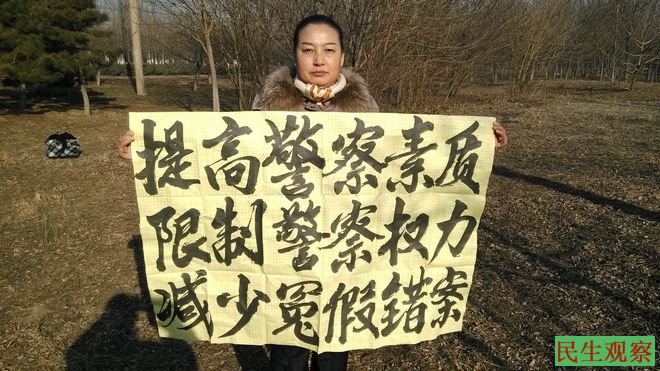 提高警察素质
限制警察权力
减少冤假错案
民生观察